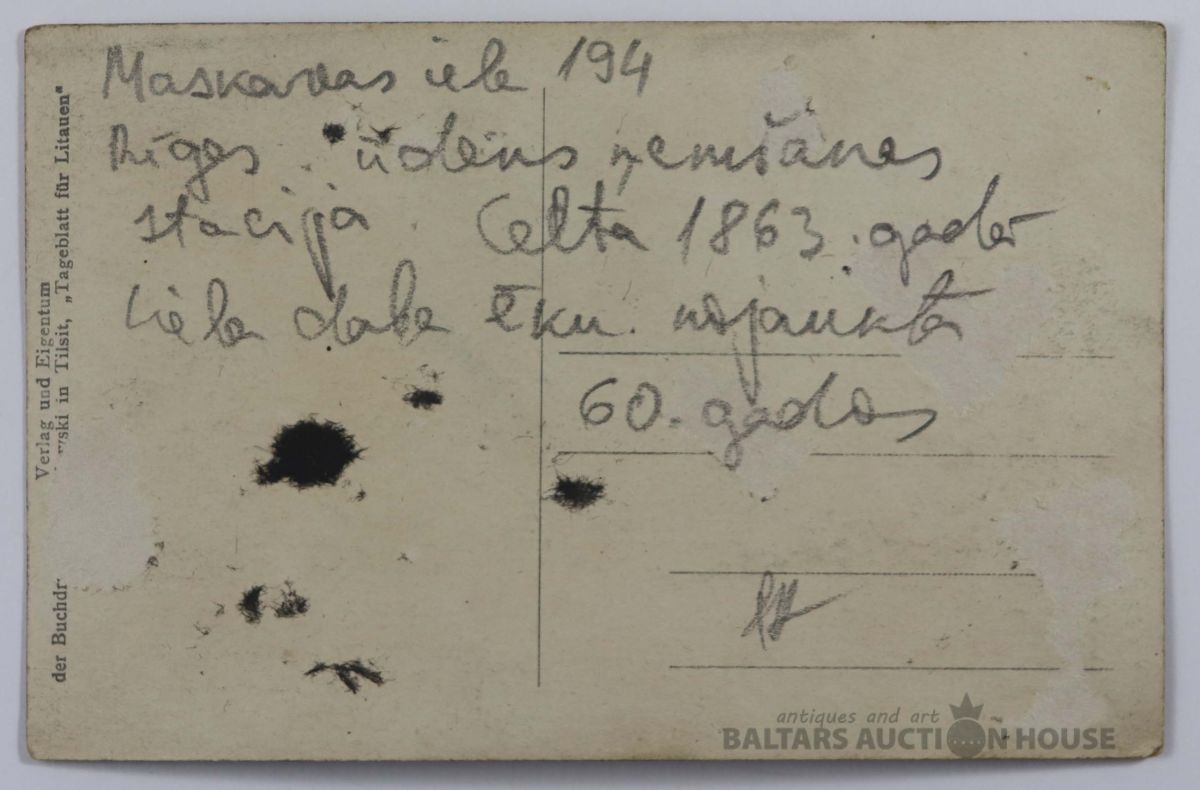 Maskavas iela 194
Rīgas ūdens ņemšanas
stacija. Celta 1863. gadā
Liela daļa ēku. nojaukta
60. gados
Verlag und Eigentum
der Buchdr wski in Tilsit, „Tageblatt für Litauen"
antiques and art
BALTARS AUCTION HOUSE